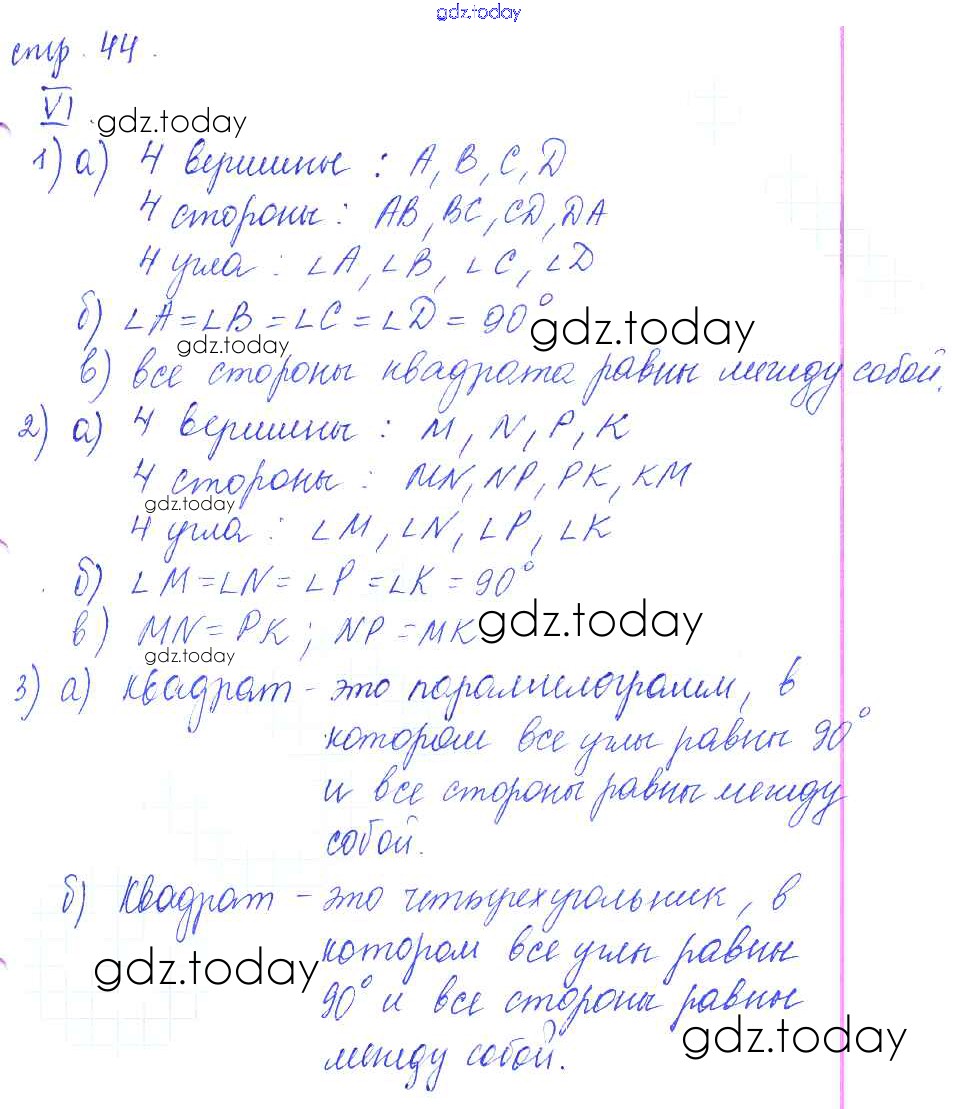 gdz.today
стр. 44.
VI
gdz.today
1) а) 4 вершины : A, B, C, D
4 стороны : AB, BC, CD, DA
4 угла : ∠A, ∠B, ∠C, ∠D
б) ∠A = ∠B = ∠C = ∠D = 90°
gdz.today
gdz.today
в) все стороны квадрата равны между собой.
2) а) 4 вершины : M, N, P, K
4 стороны : MN, NP, PK, KM
gdz.today
4 угла : ∠M, ∠N, ∠P, ∠K
б) ∠M = ∠N = ∠P = ∠K = 90°
в) MN = PK ; NP = MK
gdz.today
gdz.today
3) а) квадрат - это параллелограмм, в
котором все углы равны 90°
и все стороны равны между
собой.
б) Квадрат - это четырехугольник, в
котором все углы равны
gdz.today
90° и все стороны равны
gdz.today
между собой.